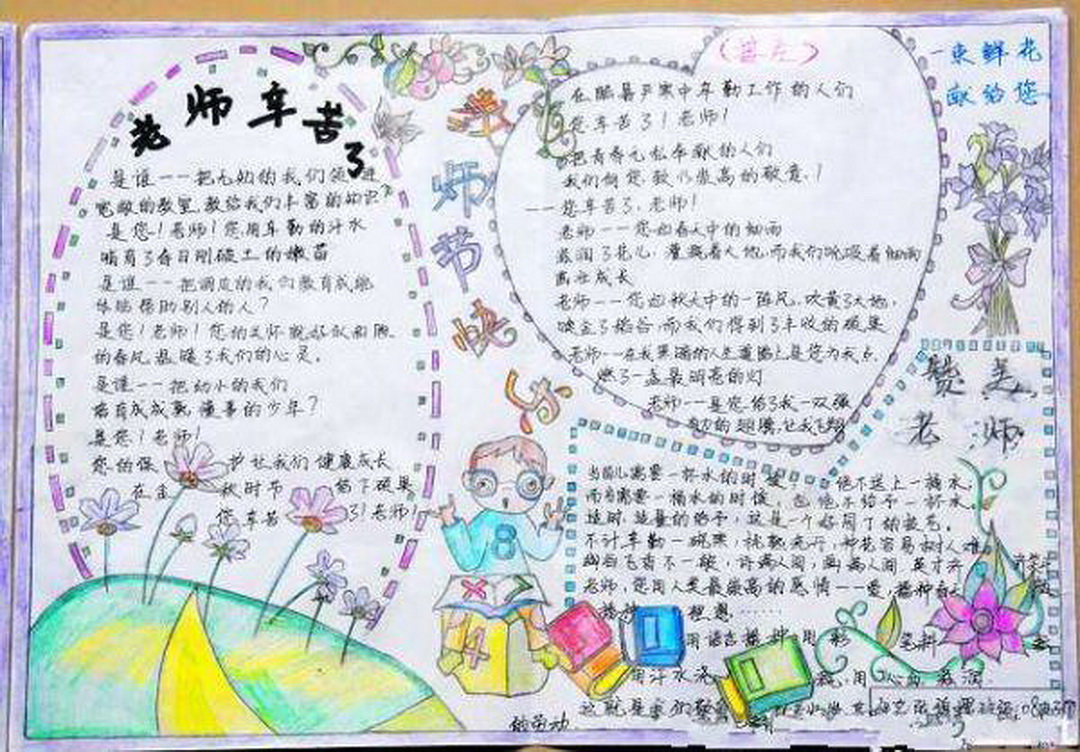 老师辛苦了
是谁一一把无知的我们领进
宽敞的教室,教给我们丰富的知识?
是您!老师!您用辛勤的汗水
哺育了春日刚破土的嫩苗
是谁一一把调皮的我们教育成能
体贴帮助别人的人?
是您!老师!您的关怀就好似和煦
的春风温暖了我们的心灵。
是谁一一把幼小的我们
培育成成熟懂事的少年?
是您!老师!
您的保护让我们健康成长
在金秋时节结下硕果
您辛苦了!老师!
教师节快乐
在酷暑严寒中辛勤工作的人们
您辛苦了!老师!
把青春无私奉献的人们
我们向您致以崇高的敬意!
一一您辛苦了,老师!
老师一一您如春天中的细雨
滋润了花儿,灌溉着大地,而我们吮吸着细雨
茁壮成长
老师一一您如秋天中的一阵风,吹黄了大地,
映金了稻谷,而我们得到了丰收的硕果
老师一一在我黑暗的人生道路上是您为我点
燃了一盏最明亮的灯
老师一一是您给了我一双强
有力的翅膀,让我飞翔
一束鲜花
献给您
赞美
老师
当你只需要一杯水的时候,他不送上一桶水,
而当需要一桶水的时候,也他不给予一杯水。
适时,适量的给予,这是一个好园丁的技艺。
不计辛勤一砚寒,桃熟流丹,种花容易树人难。
幽谷飞香不一般,诗满人间,画满人间,英才济
老师,您用人类最崇高的感情一一爱,播种春天,
播种理想
用语言播种,用彩笔耕
用汗水浇灌,用心血滋润
这就是我们敬爱的